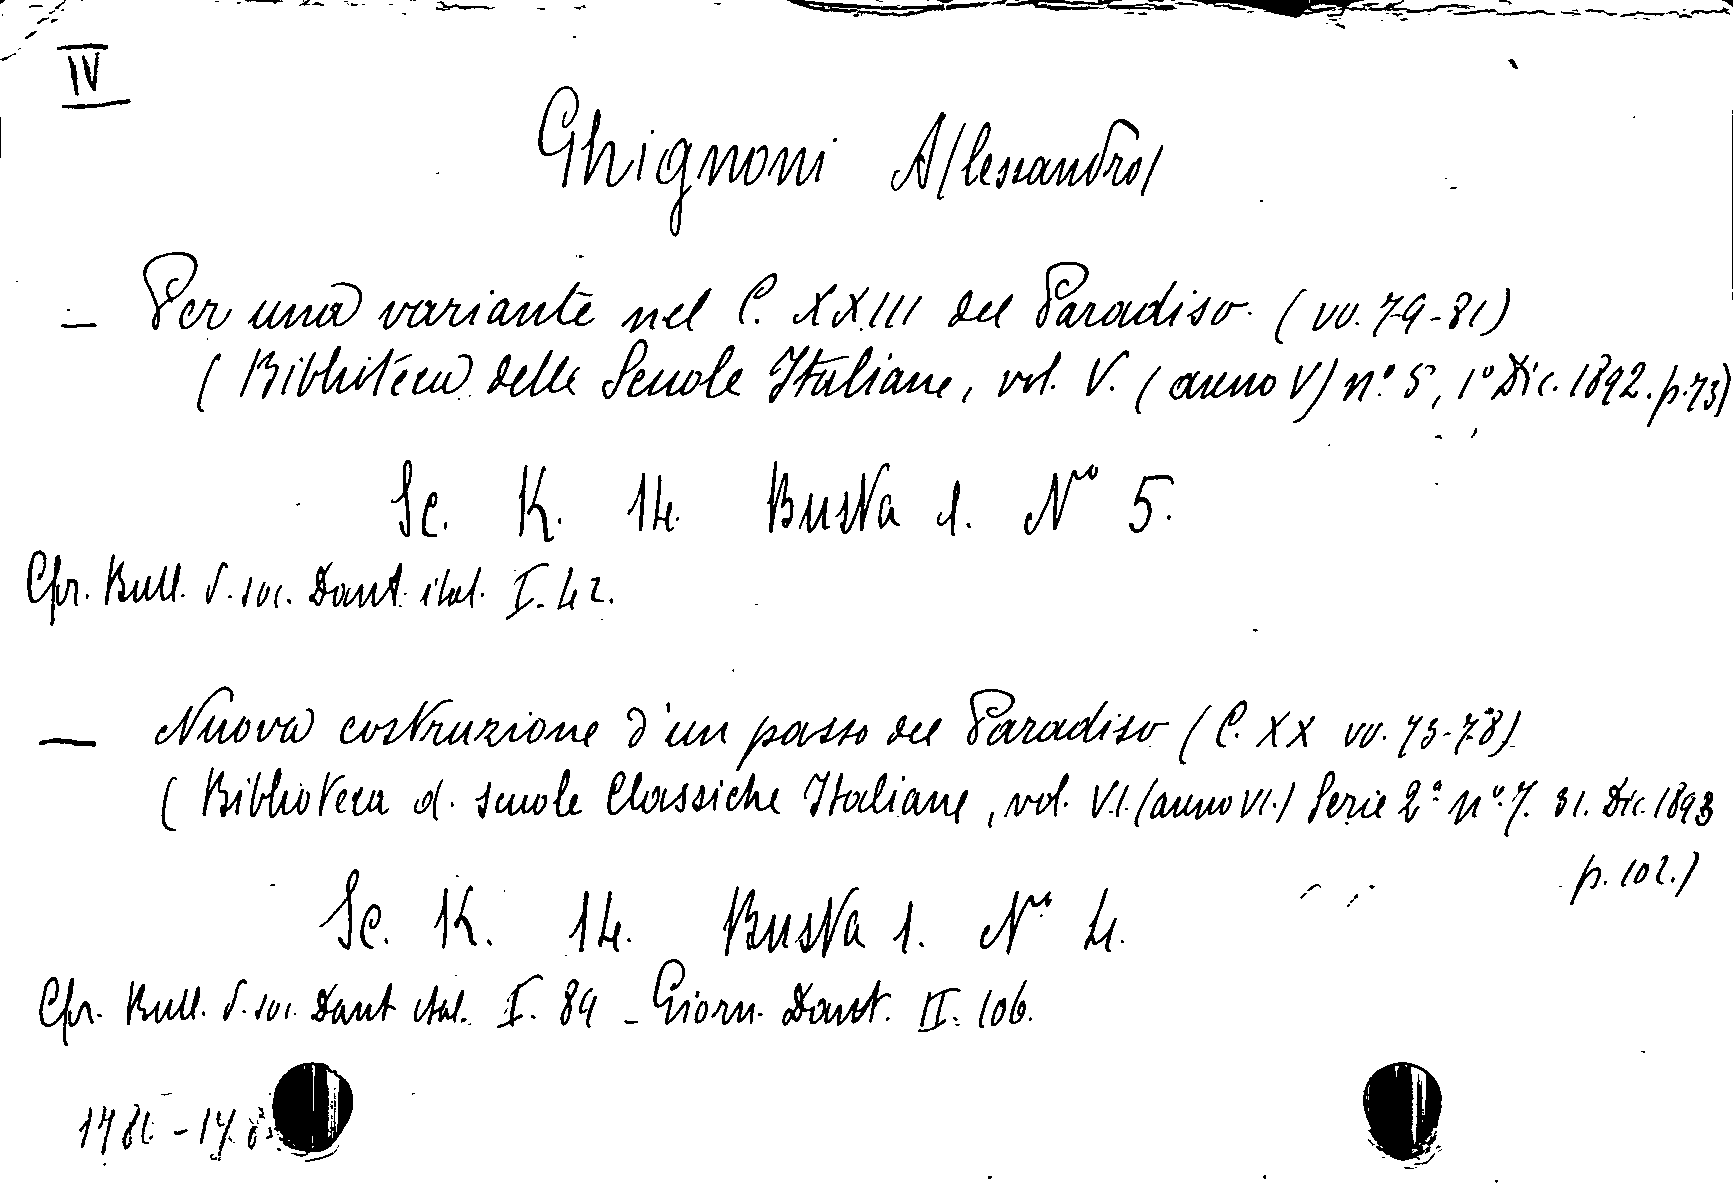 IV
Ghignoni A/lessandro/
— Per una variante nel C. XXIII del Paradiso. (vv. 79-81)
(Biblioteca delle Scuole Italiane, vol. V. (anno V) n.° 5, 1° Dic. 1892. p. 73)
Sc. K. 14. Busta 1. N° 5.
Cfr. Bull. d. soc. Dant. ital. I. 42.
— Nuova costruzione d'un passo del Paradiso (C. XX vv. 73-78)
(Biblioteca d. scuole Classiche Italiane, vol. VI. (anno VI.) Serie 2ª n°. 7. 31. Dic. 1893
p. 102.)
Sc. K. 14. Busta 1. N° 4.
Cfr. Bull. d. soc. Dant ital. I. 89 - Giorn. Dant. II. 106.